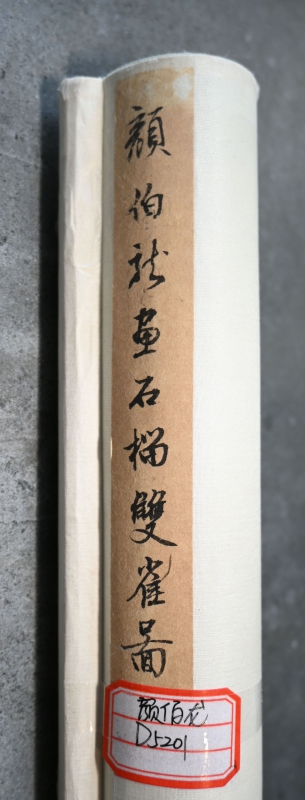 顏伯龙畫石榴雙雀圖
颜伯龙
D5201